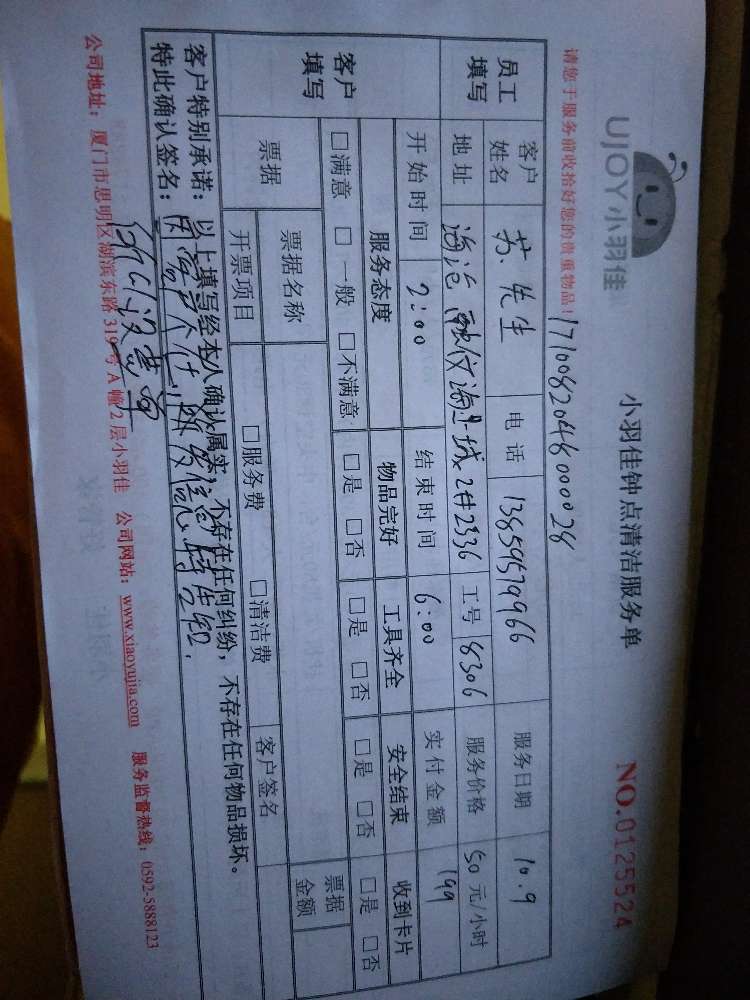 UJOY小羽佳
小羽佳钟点清洁服务单
NO.0125524
请您于服务前收拾好您的贵重物品!
17100820486000028
员工填写 客户姓名 苏先生 电话 13859579966 服务日期 10.9
地址 海沧 融侨海 城2#2336 工号 8306 服务价格 50元/小时
开始时间 2:00 结束时间 6:00 实付金额 199
客户填写 服务态度 物品完好 工具齐全 安全结束 收到卡片
□满意 □一般 □不满意 □是 □否 □是 □否 □是 □否 □是 □否
票据 票据名称 票据金额
开票项目 □服务费 □清洁费 客户签名
客户特别承诺:以上填写经本人确认属实,不存在任何纠纷,不存在任何物品损坏。
特此确认签名:
公司地址:厦门市思明区湖滨东路319号A幢2层小羽佳 公司网站:www.xiaoyujia.com 服务监督热线:0592-5888123